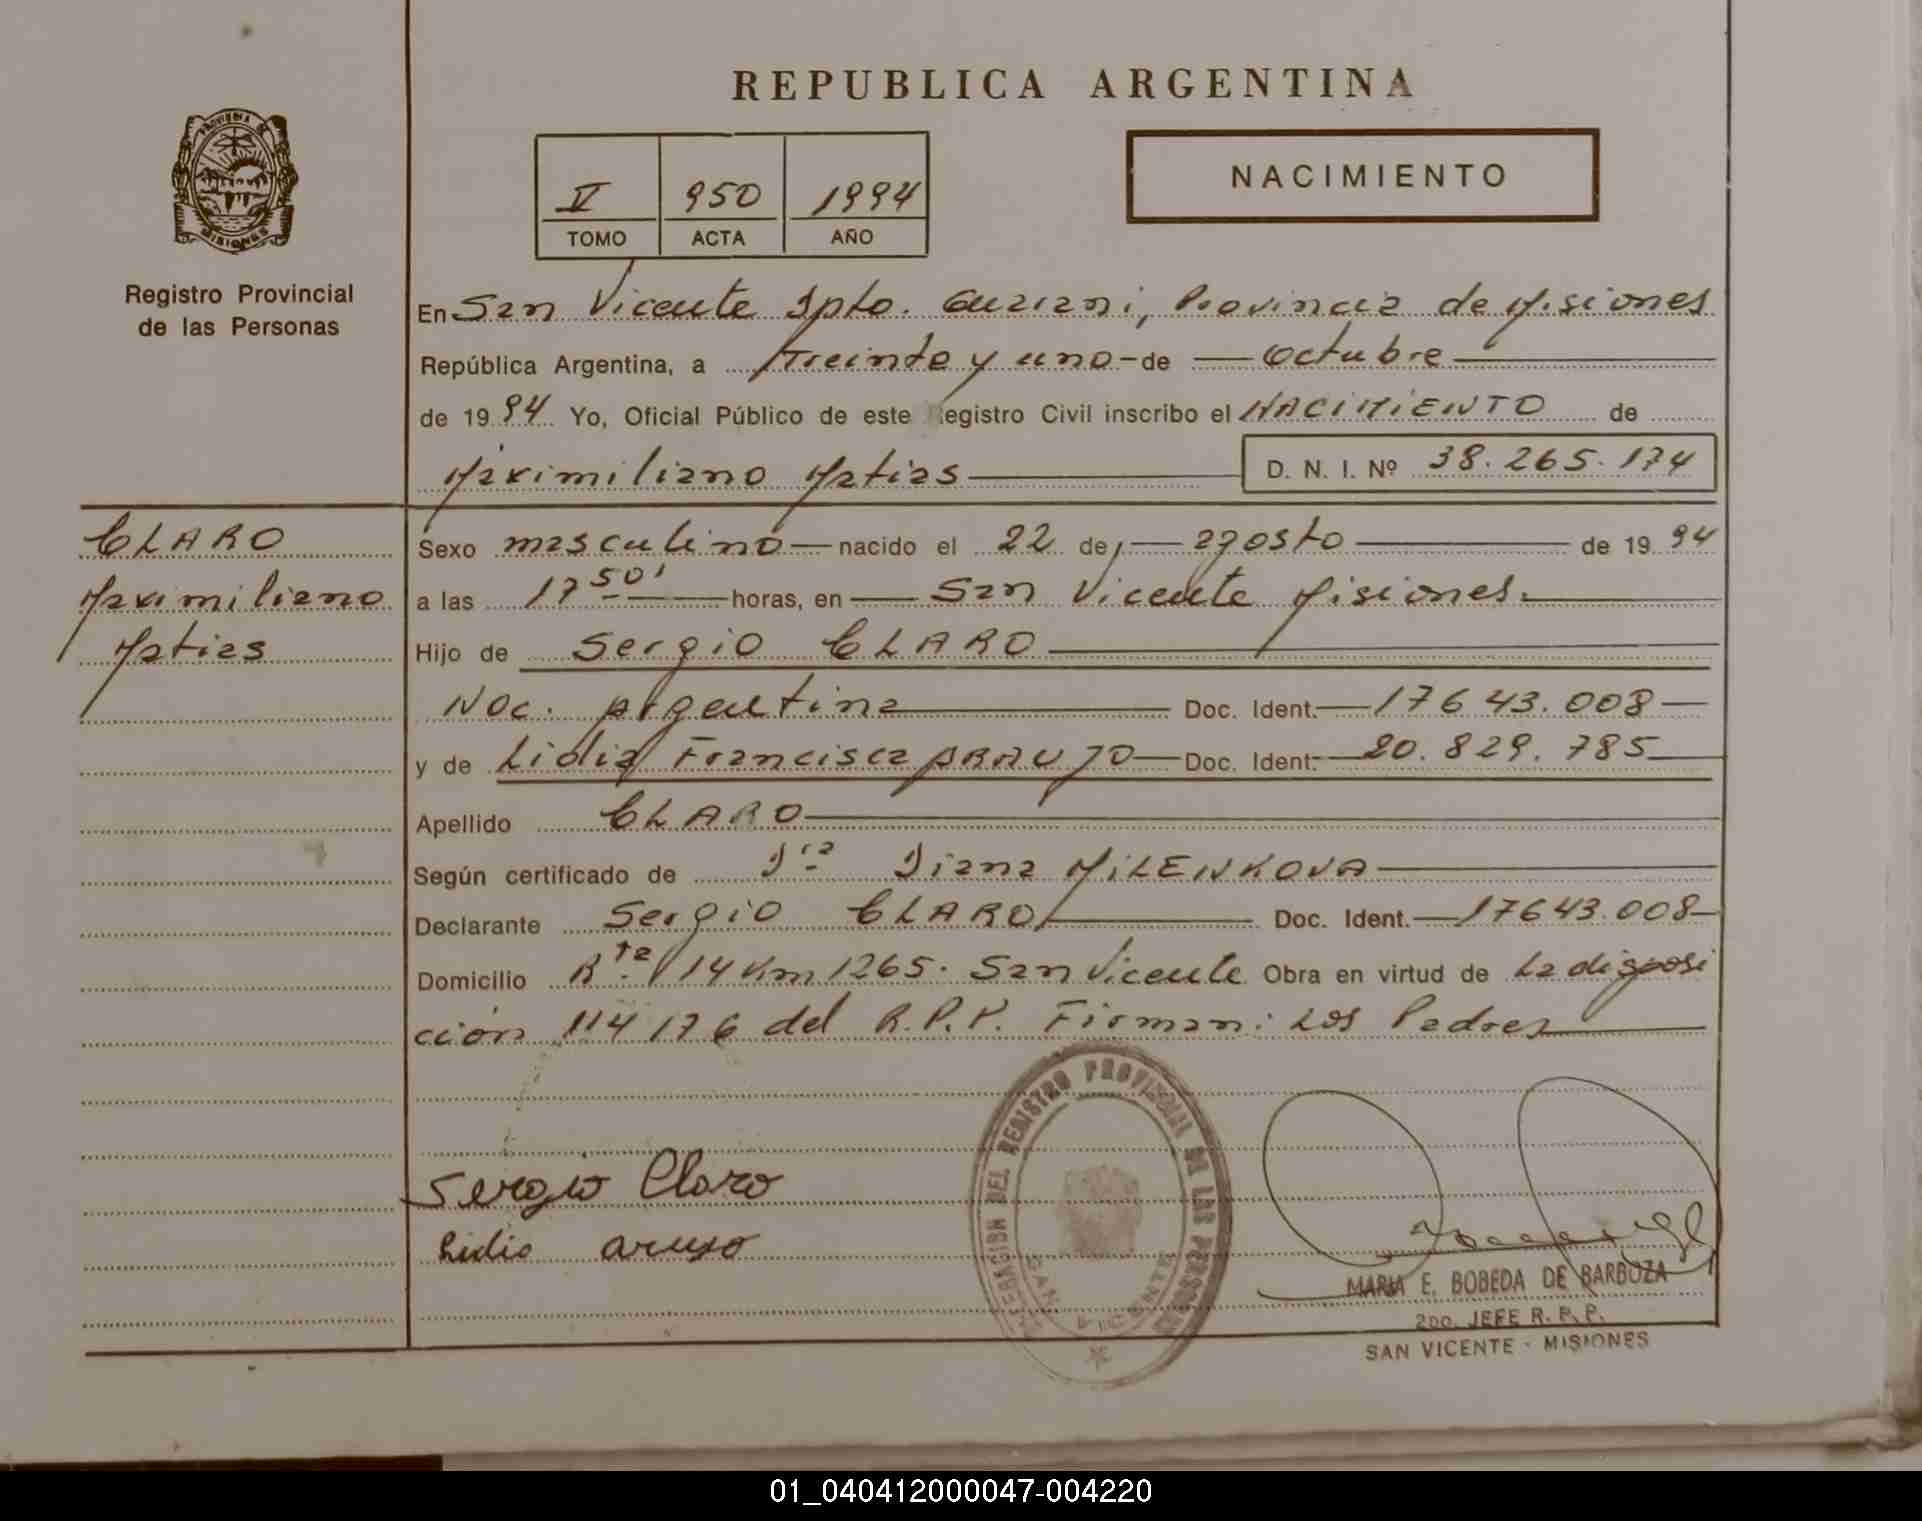 REPUBLICA ARGENTINA
NACIMIENTO
V 950 1994
TOMO ACTA AÑO
PROVINCIA DE
MISIONES
Registro Provincial
de las Personas
En San Vicente Dpto. Guarani, Provincia de Misiones
República Argentina, a Treinta y uno - de octubre
de 1994 Yo, Oficial Público de este Registro Civil inscribo el NACIMIENTO de
Maximiliano Matias D. N. I. Nº 38.265.174
CLARO
Maximiliano
Matias
Sexo masculino nacido el 22 de agosto de 1994
a las 17 50' horas, en San Vicente Misiones.
Hijo de Sergio CLARO
Nac. Argentina Doc. Ident. 17643.008
y de Lidia Francisca ARAUJO Doc. Ident. 20.829.785
Apellido CLARO
Según certificado de Dra Diana MILENKOVA
Declarante Sergio CLARO Doc. Ident. 17643.008
Domicilio Rta 14 Km 1265. San Vicente Obra en virtud de La disposi
ción 114176 del R.P.P. Firman: Los Padres
Sergio Claro
Lidia arujo
DELEGACION DEL REGISTRO PROVINCIAL DE LAS PERSONAS
SAN VICENTE
MARIA E. BOBEDA DE BARBOZA
2DO. JEFE R. P. P.
SAN VICENTE - MISIONES
01_040412000047-004220